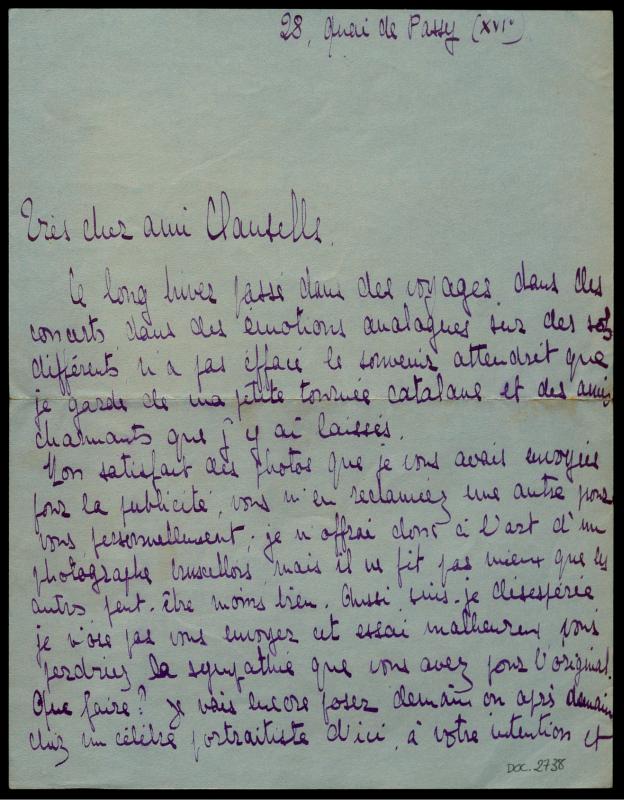 28, Quai de Passy (XVIe)
Très cher ami Clausells,
Le long hiver passé dans des voyages, dans des
concerts dans des émotions analogues sur des sols
différents n'a pas éffacé le souvenir attendrit que
je garde de ma petite tournée catalane et des amis
charmants que j'y ai laissés.
Non satisfait des photos que je vous avais envoyées
pour la publicité, vous m'en reclamiez une autre pour
vous personnellement; je m'offrai donc à l'art d'un
photographe bruxellois, mais il ne fit pas mieux que les
autres peut-être moins bien. Aussi suis-je désespérée
je n'ose pas vous envoyer cet essai malheureux, vous
perdriez la sympathie que vous avez pour l'original.
Que faire? Je vais encore poser demain ou après demain
chez un célébre portraitiste d'ici, à votre intention et
DOC. 2738